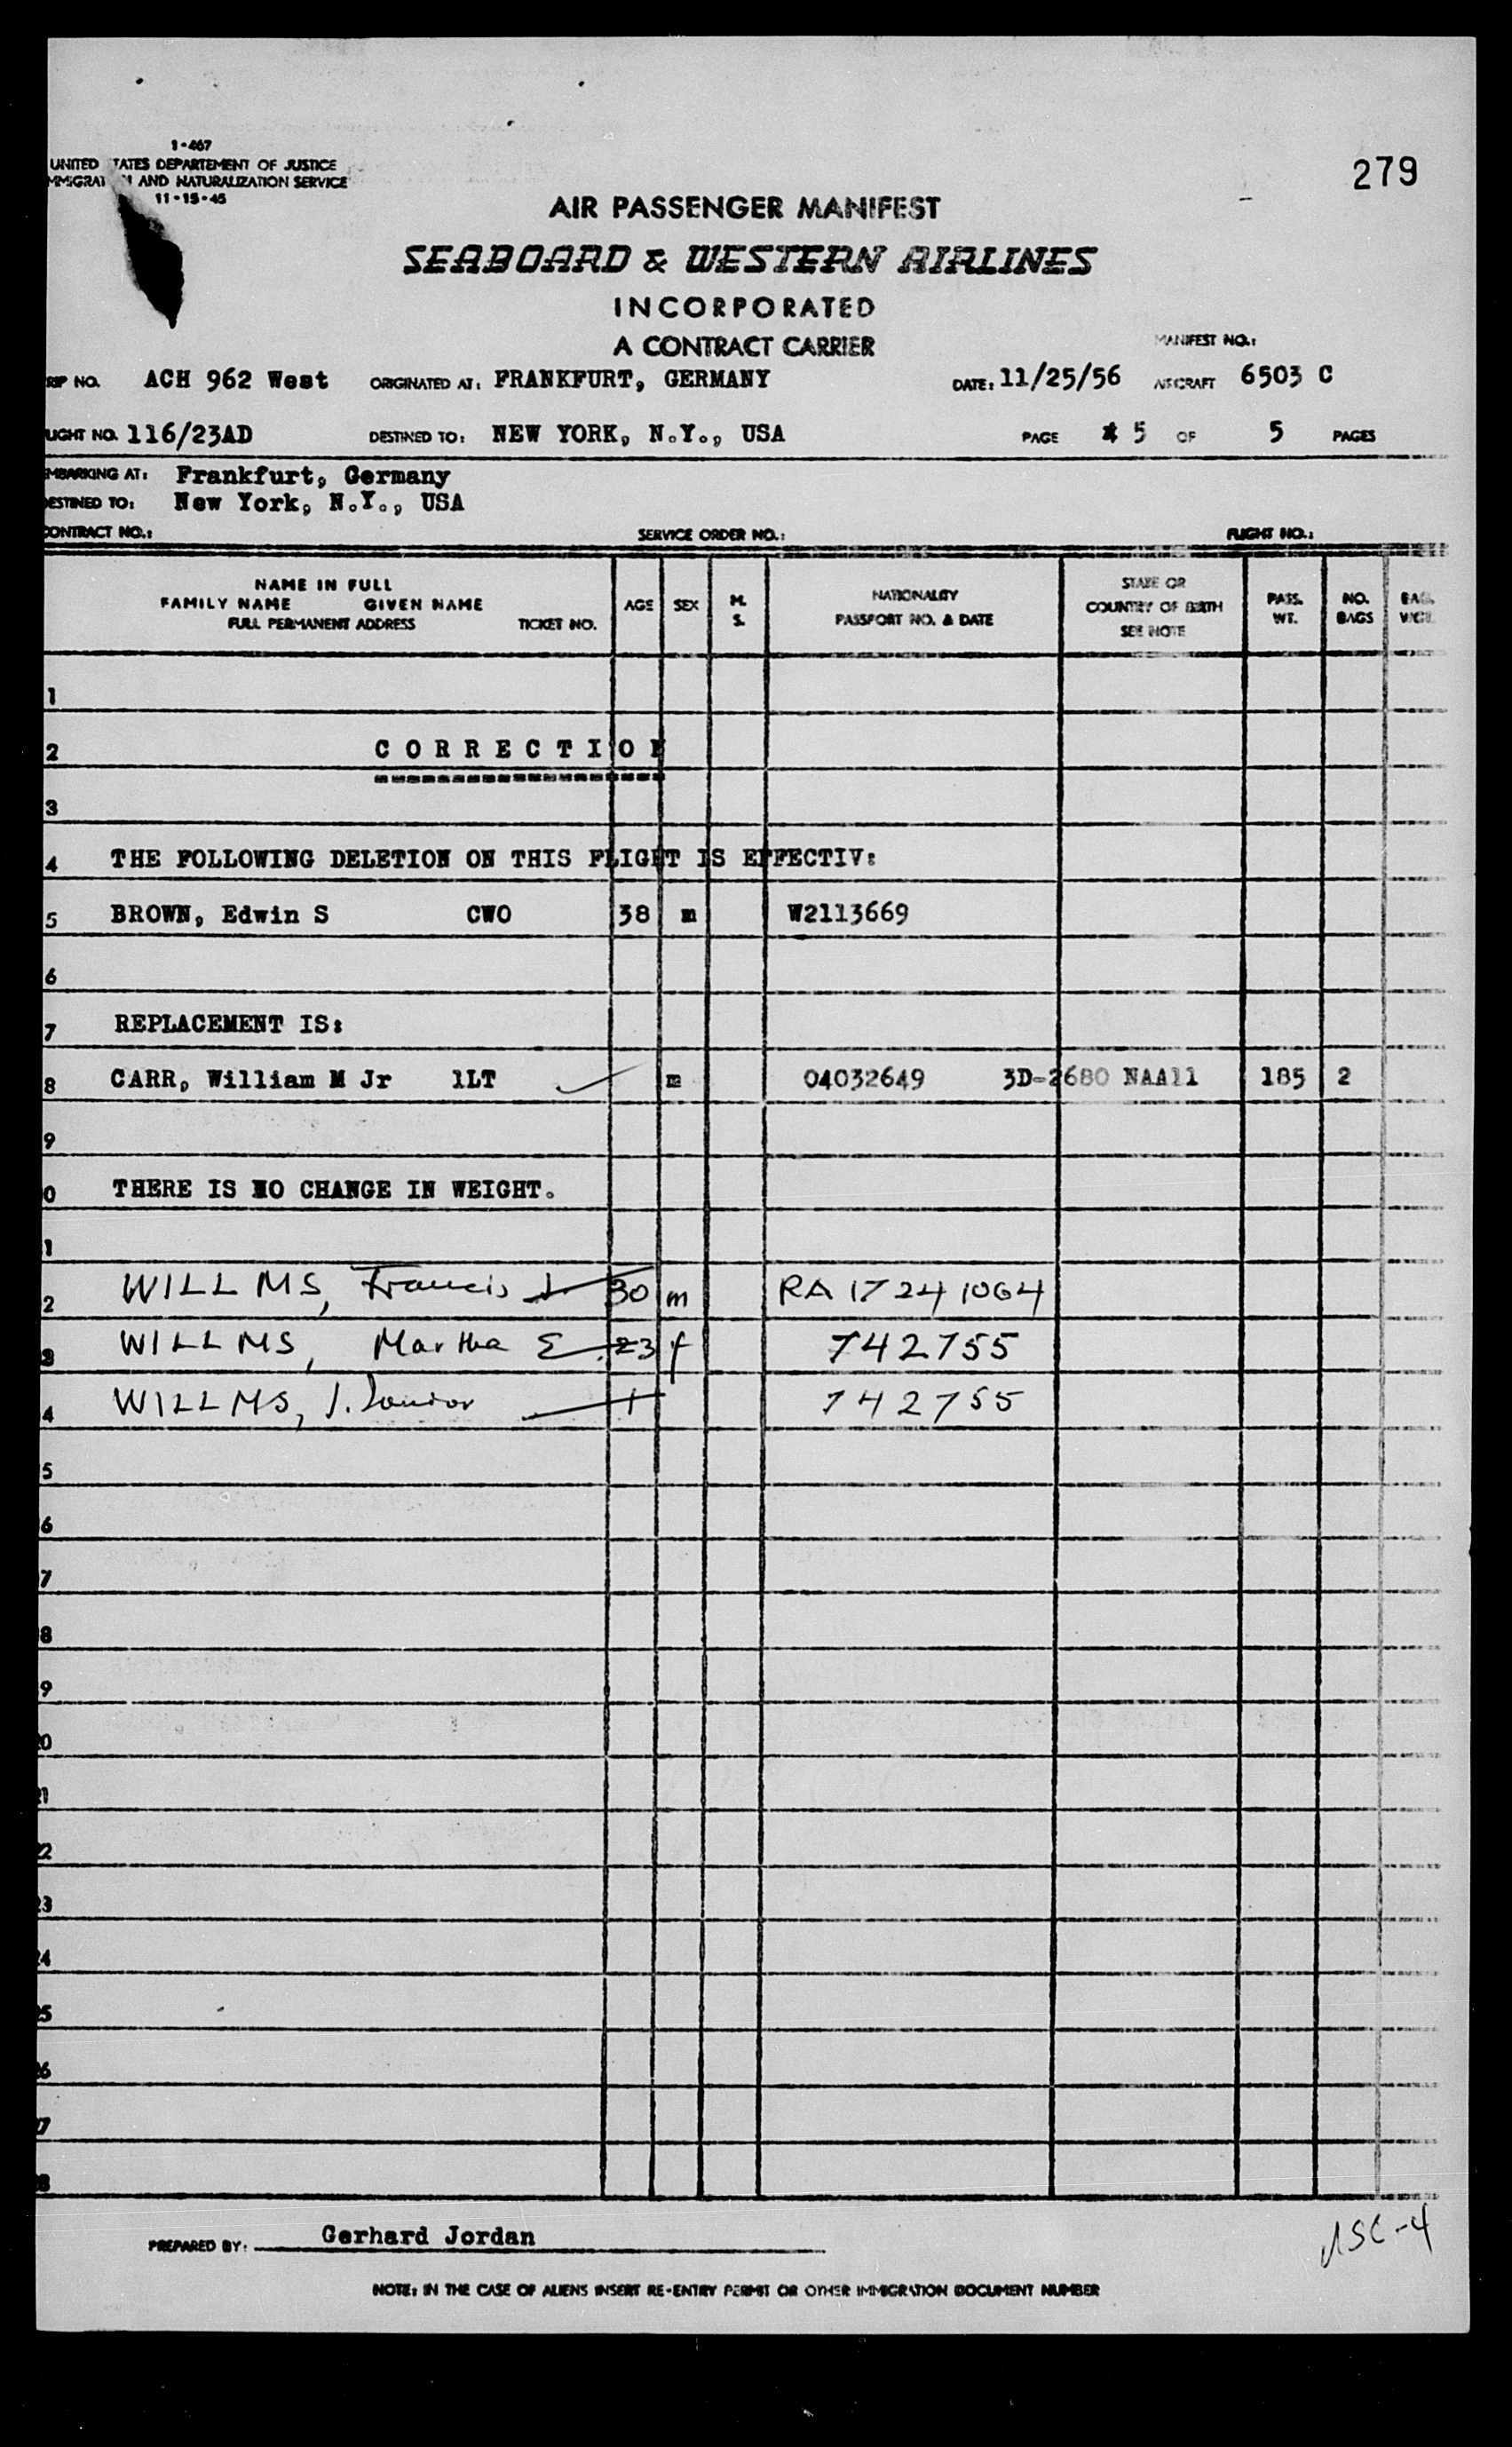 1-467
UNITED TATES DEPARTEMENT OF JUSTICE
MMIGRAT N AND NATURALIZATION SERVICE
11-15-45
279
AIR PASSENGER MANIFEST
SEABOARD & WESTERN AIRLINES
INCORPORATED
A CONTRACT CARRIER
MANIFEST NO.:
RIP NO. ACH 962 West ORIGINATED AT: FRANKFURT, GERMANY DATE: 11/25/56 AIRCRAFT 6503 C
LIGHT NO. 116/23AD DESTINED TO: NEW YORK, N.Y., USA PAGE 5 OF 5 PAGES
MBARKING AT: Frankfurt, Germany
DESTINED TO: New York, N.Y., USA
CONTRACT NO.: SERVICE ORDER NO.: FLIGHT NO.:
NAME IN FULL
FAMILY NAME GIVEN NAME
FULL PERMANENT ADDRESS TICKET NO. AGE SEX M. S. NATIONALITY PASSPORT NO. & DATE STATE OR COUNTRY OF BIRTH SEE NOTE PASS. WT. NO. BAGS BAG. WGT.
1
2 CORRECTION
3
4 THE FOLLOWING DELETION ON THIS FLIGHT IS EFFECTIV:
5 BROWN, Edwin S CWO 38 m W2113669
6
7 REPLACEMENT IS:
8 CARR, William M Jr 1LT m 04032649 3D-2680 NAA11 185 2
9
0 THERE IS NO CHANGE IN WEIGHT.
1
2 WILLMS, Francis J 30 m RA 17241064
3 WILLMS, Martha E 23 f 742755
4 WILLMS, J. Junior 1 742755
5
6
7
8
9
20
21
22
23
24
25
26
27
28
PREPARED BY: Gerhard Jordan
NOTE: IN THE CASE OF ALIENS INSERT RE-ENTRY PERMIT OR OTHER IMMIGRATION DOCUMENT NUMBER